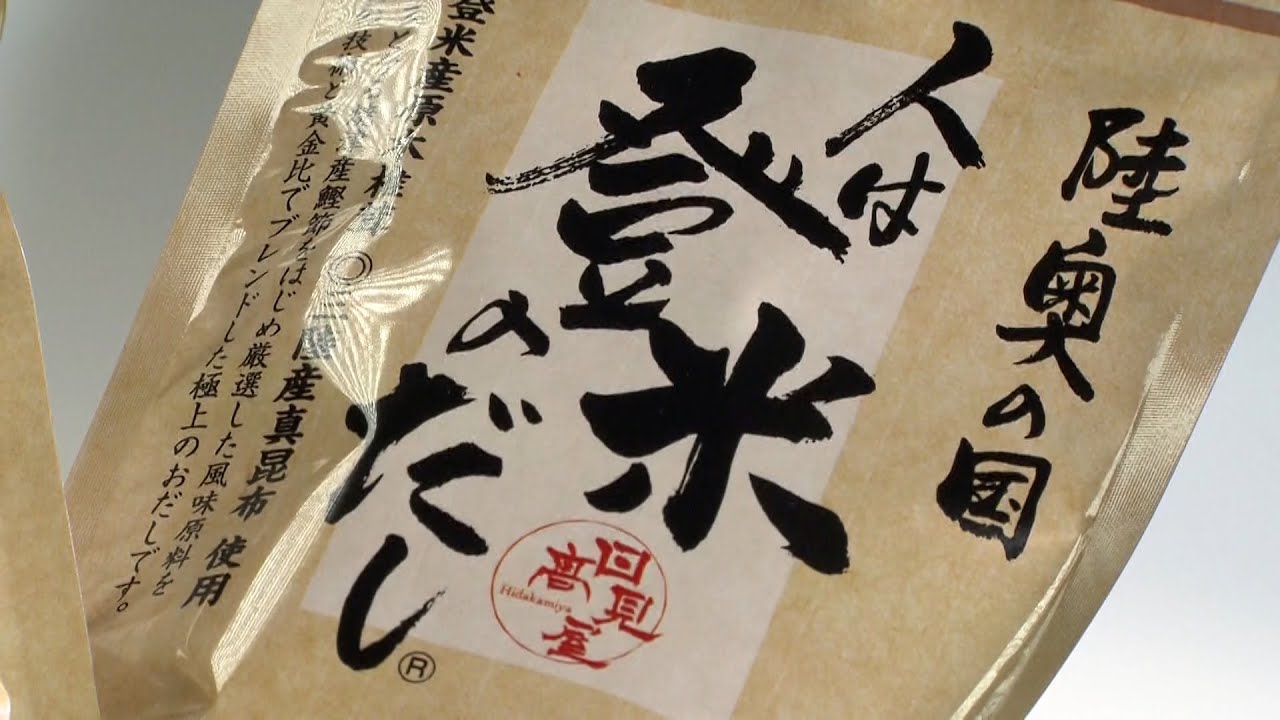 陸奥の国
人は
登米
のだし®
日髙見屋
Hidakamiya
登米産原木椎茸 ◎三陸産真昆布 使用
技術と 黄金比でブレンドした極上のおだしです。
産鰹節をはじめ厳選した風味原料を